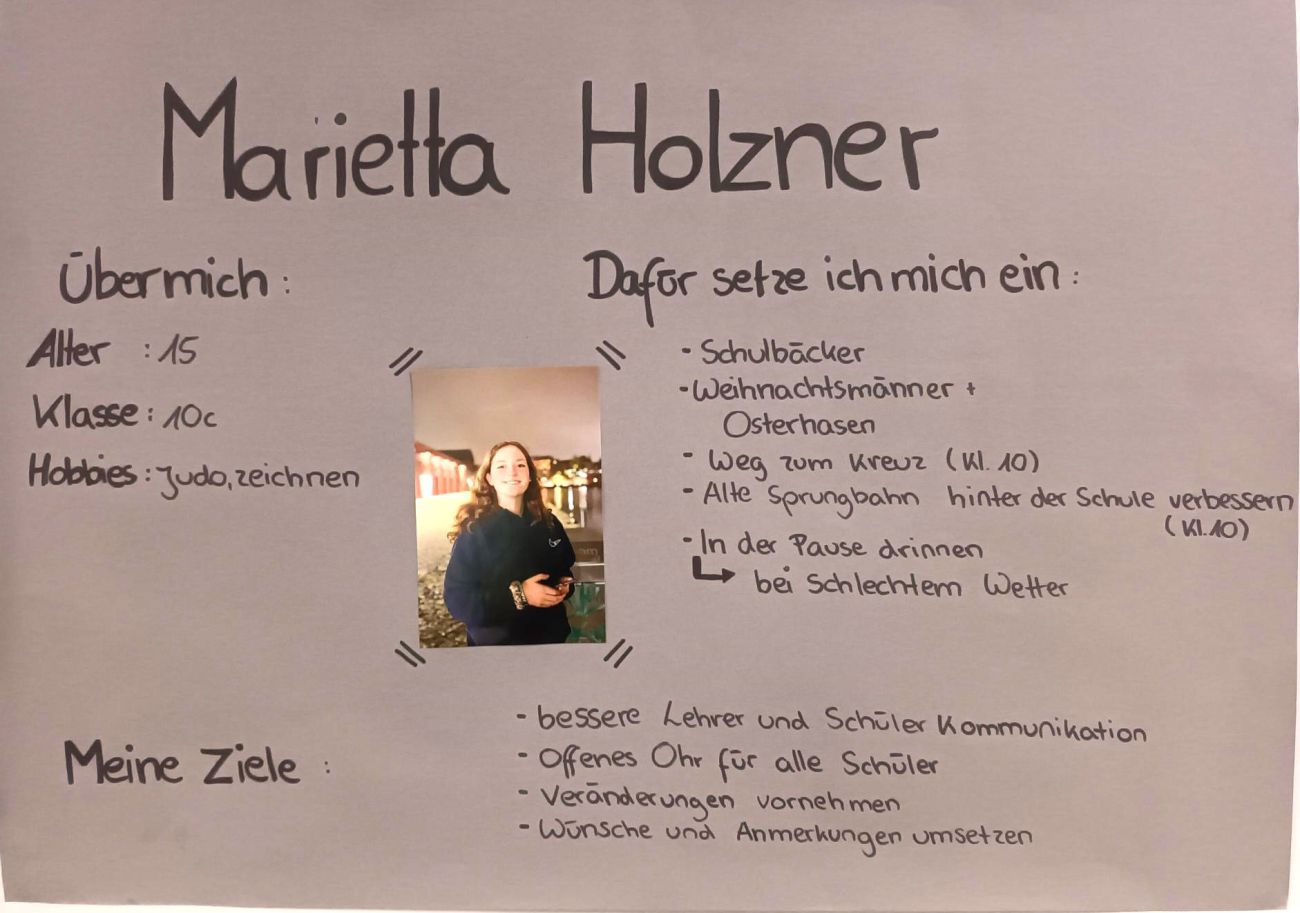 Marietta Holzner
Über mich:
Alter : 15
Klasse: 10c
Hobbies: Judo, zeichnen
Dafür setze ich mich ein:
- Schulbäcker
- Weihnachtsmänner +
Osterhasen
- Weg zum Kreuz (Kl. 10)
- Alte Sprungbahn hinter der Schule verbessern
(Kl.10)
- In der Pause drinnen
↳ bei Schlechtem Wetter
Meine Ziele :
- bessere Lehrer und Schüler Kommunikation
- Offenes Ohr für alle Schüler
- Veränderungen vornehmen
- Wünsche und Anmerkungen umsetzen